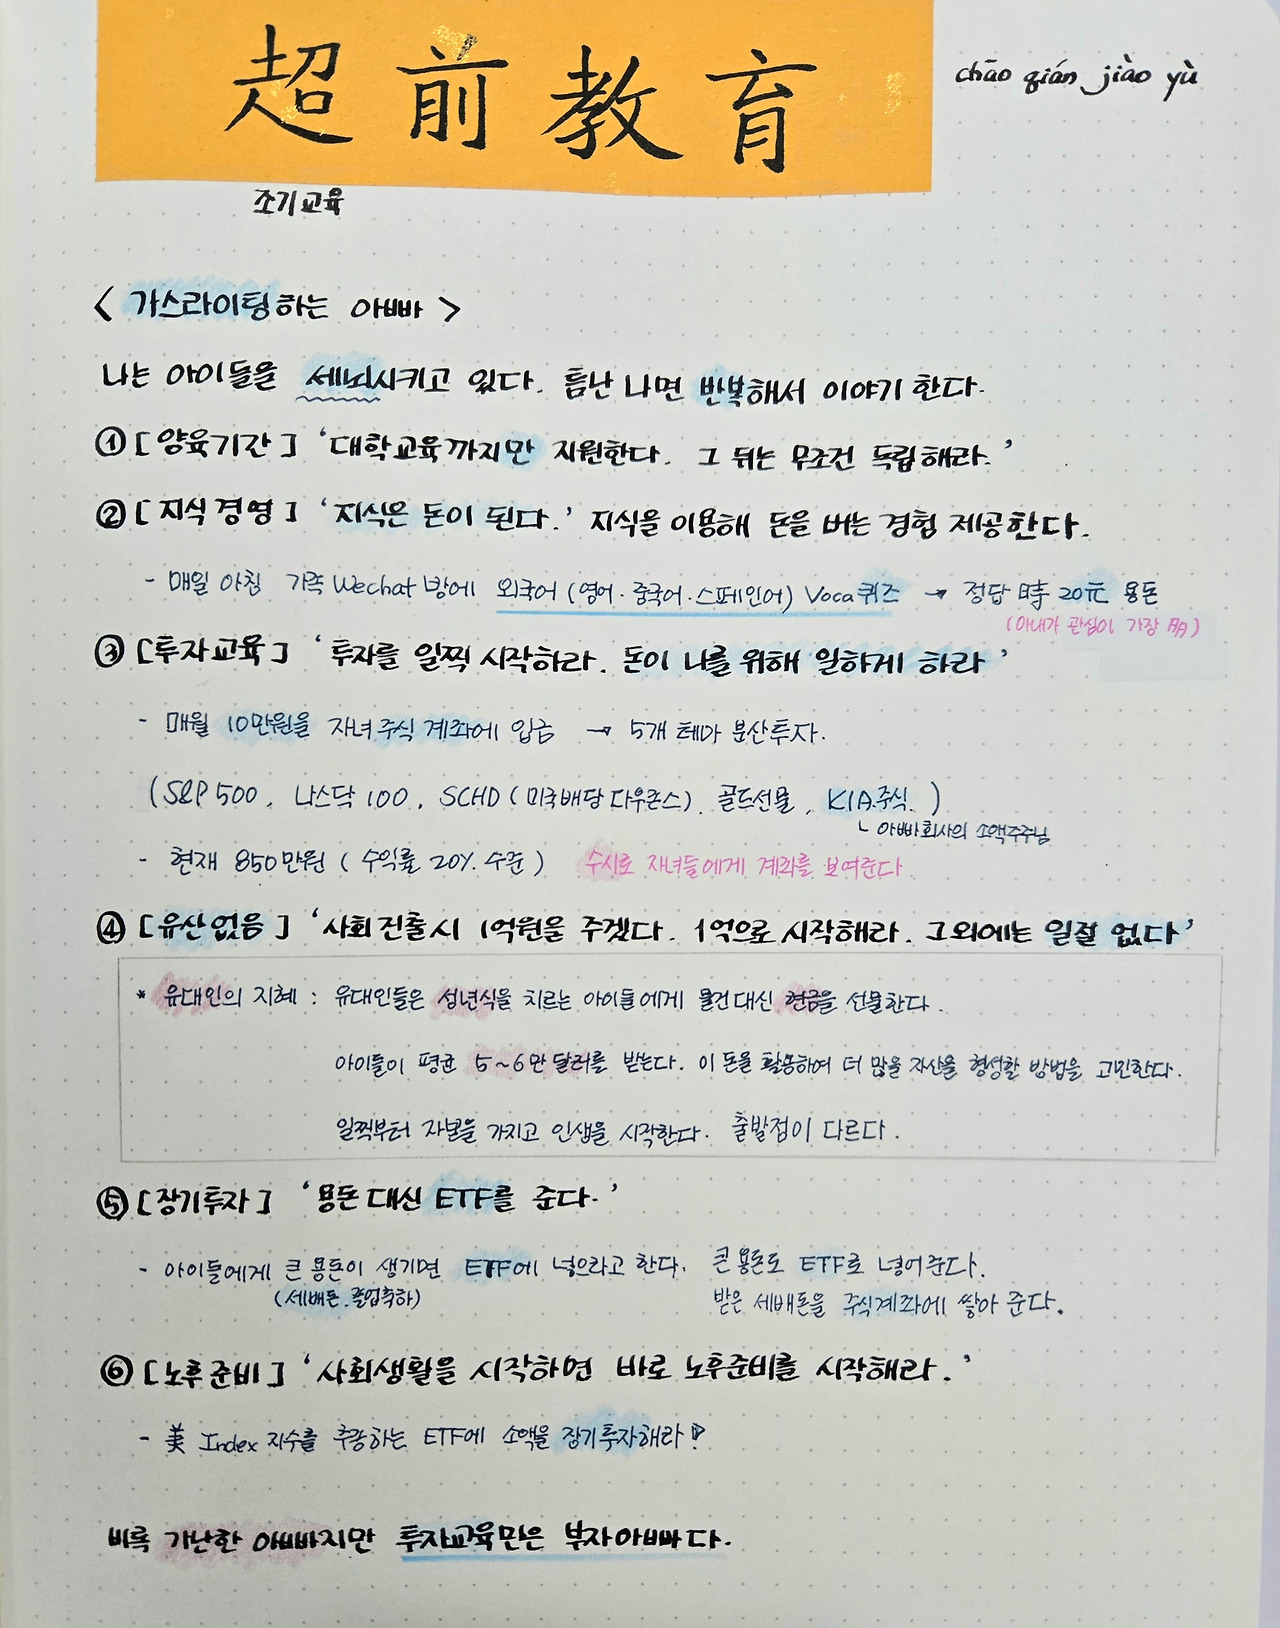 超前教育
chāo qián jiào yù
조기교육
< 가스라이팅하는 아빠 >
나는 아이들을 세뇌시키고 있다. 틈난 나면 반복해서 이야기 한다.
① [양육기간] '대학교육까지만 지원한다. 그 뒤는 무조건 독립해라.'
② [지식경영] '지식은 돈이 된다.' 지식을 이용해 돈을 버는 경험 제공한다.
- 매일 아침 가족 Wechat 방에 외국어 (영어·중국어·스페인어) Voca 퀴즈 → 정답 時 20元 용돈
(아내가 관심이 가장 多)
③ [투자교육] '투자를 일찍 시작하라. 돈이 나를 위해 일하게 하라'
- 매월 10만원을 자녀 주식 계좌에 입금 → 5개 테마 분산투자.
(S&P 500, 나스닥 100, SCHD (미국배당 다우존스), 골드선물, KIA주식.)
ㄴ 아빠회사의 소액주주님
- 현재 850만원 (수익률 20% 수준) 수시로 자녀들에게 계좌를 보여준다.
④ [유산없음] '사회진출시 1억원을 주겠다. 1억으로 시작해라. 그외에는 일절 없다'
* 유대인의 지혜 : 유대인들은 성년식을 치르는 아이들에게 물건대신 현금을 선물한다.
아이들이 평균 5~6만 달러를 받는다. 이 돈을 활용하여 더 많을 자산을 형성할 방법을 고민한다.
일찍부터 자본을 가지고 인생을 시작한다. 출발점이 다르다.
⑤ [장기투자] '용돈 대신 ETF를 준다.'
- 아이들에게 큰 용돈이 생기면 ETF에 넣으라고 한다. 큰 용돈도 ETF로 넣어준다.
(세배돈.졸업축하) 받은 세배돈을 주식계좌에 쌓아 준다.
⑥ [노후준비] '사회생활을 시작하면 바로 노후준비를 시작해라.'
- 美 Index 지수를 추종하는 ETF에 소액을 장기투자해라!
비록 가난한 아빠지만 투자교육만은 부자아빠다.